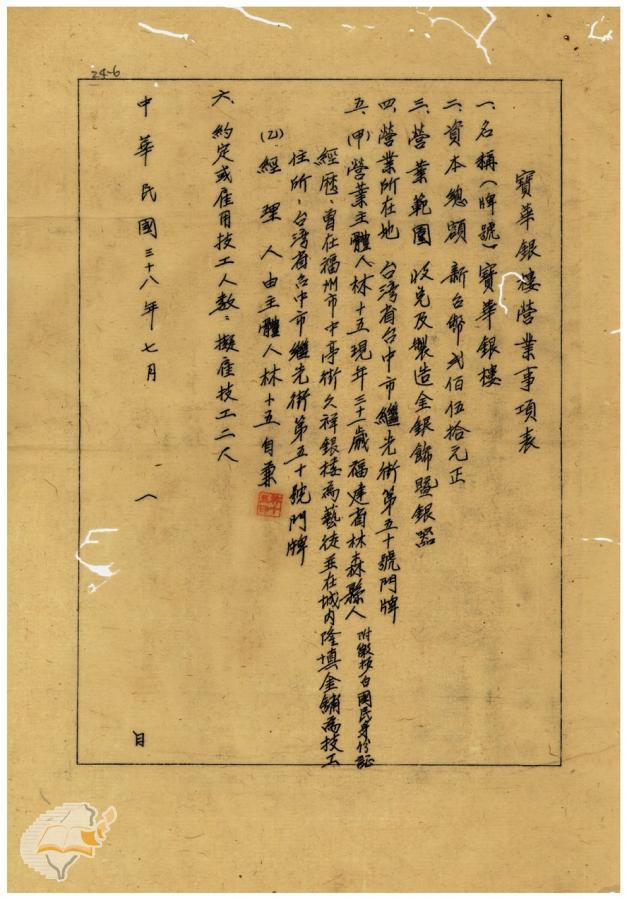 24-6
寶華銀樓營業事項表
一、名稱（牌號）寶華銀樓
二、資本總額 新台幣貳佰伍拾元正
三、營業範圍 收兌及製造金銀飾暨銀器
四、營業所在地 台湾省台中市繼光街第五十號門牌
五、(甲)營業主體人林十五現年三十一歲福建省林森縣人 附繳 台國民身份証
經歷、曾在福州市中亭街久祥銀楼為藝徒並在城内隆填金鋪為技工
住所、台湾省台中市繼光街第五十號門牌
(乙)經理人由主體人林十五自兼
六、約定或雇用技工人数：擬雇技工二人
中華民國三十八年七月 八 日